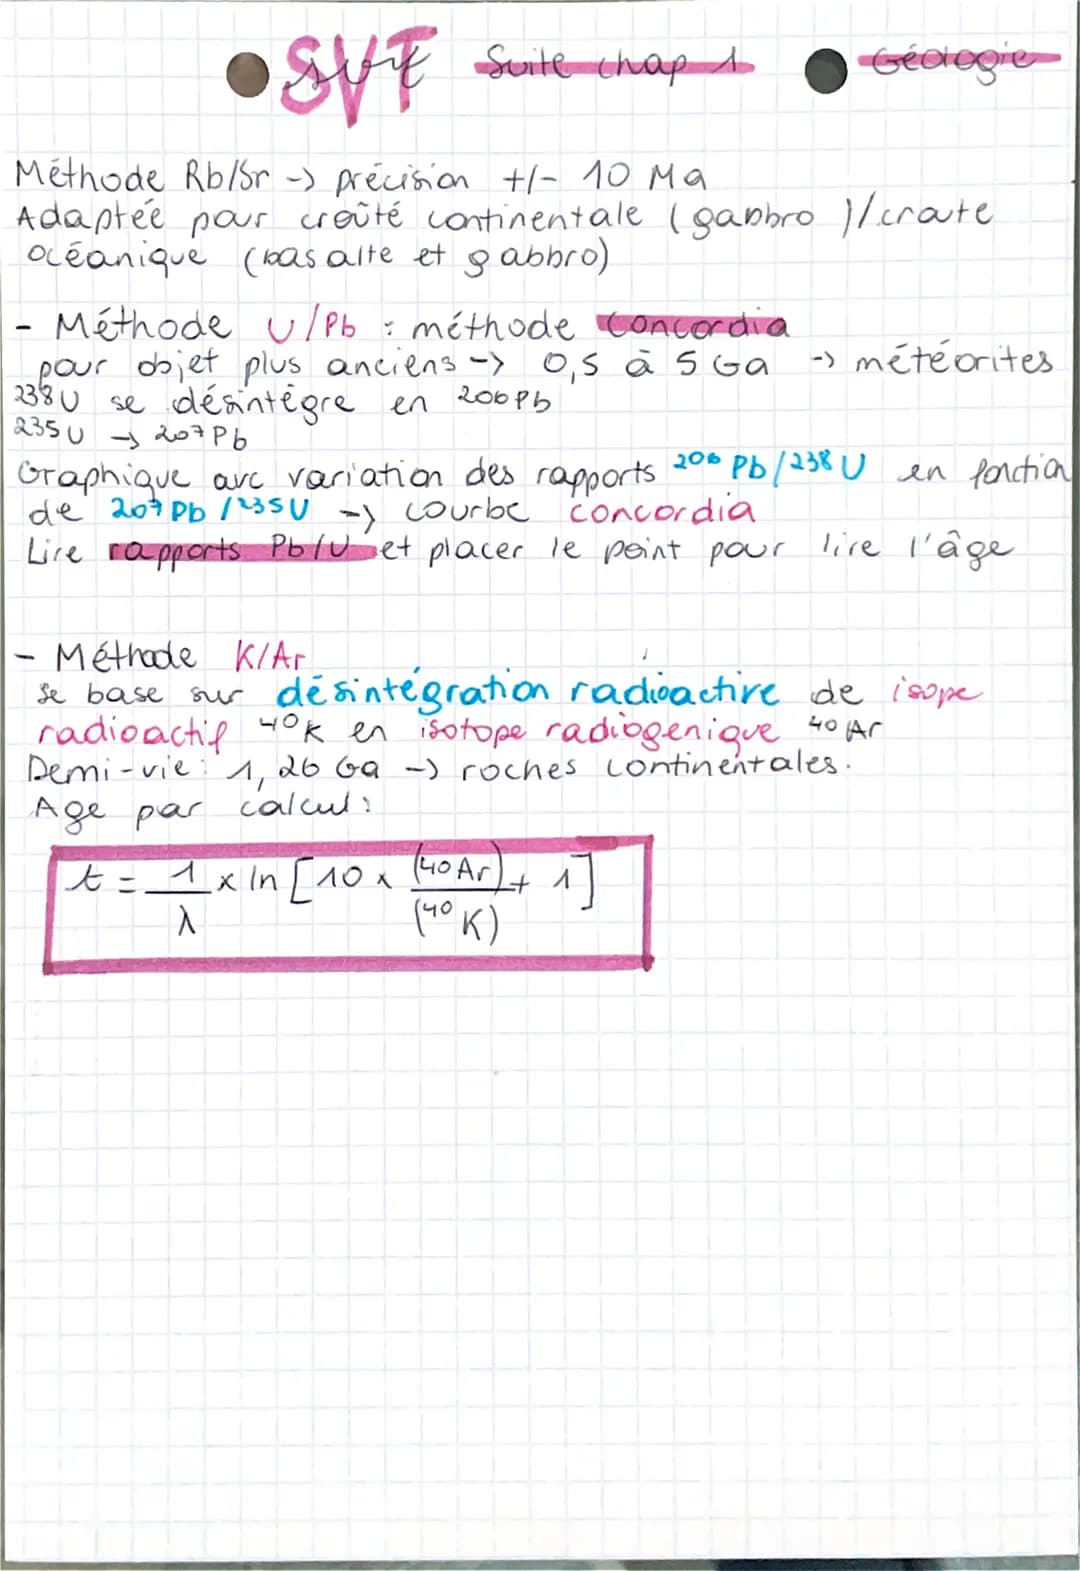 SVT Suite chap 1 Géologie
Méthode Rb/Sr -> précision +/- 10 Ma
Adaptée pour croûté continentale (ganbro)/croute
océanique (basalte et gabbro)
- Méthode U/Pb : méthode concordia
pour objet plus anciens -> 0,5 à 5 Ga -> météorites
238U se désintègre en 206Pb
235U -> 207Pb
Graphique avc variation des rapports 206 Pb/238 U en fonction
de 207 Pb /235U -> courbe concordia
Lire rapports Pb/U et placer le point pour lire l'âge
- Méthode K/Ar
se base sur désintégration radioactive de isope
radioactif 40K en isotope radiogenique 40 Ar
Demi-vie: 1,26 Ga -> roches continentales.
Age par calcul:
t = 1/λ x ln [10 x (40 Ar)/(40 K) + 1]